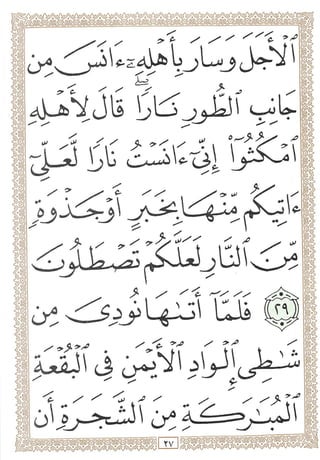 ٱلْأَجَلَ وَسَارَ بِأَهْلِهِۦٓ ءَانَسَ مِن
جَانِبِ ٱلطُّورِ نَارًاۖ قَالَ لِأَهْلِهِ
ٱمْكُثُوٓا۟ إِنِّىٓ ءَانَسْتُ نَارًا لَّعَلِّىٓ
ءَاتِيكُم مِّنْهَا بِخَبَرٍ أَوْ جَذْوَةٍ
مِّنَ ٱلنَّارِ لَعَلَّكُمْ تَصْطَلُونَ
٢٩ فَلَمَّآ أَتَىٰهَا نُودِىَ مِن
شَٰطِئِ ٱلْوَادِ ٱلْأَيْمَنِ فِى ٱلْبُقْعَةِ
ٱلْمُبَٰرَكَةِ مِنَ ٱلشَّجَرَةِ أَن
٢٧